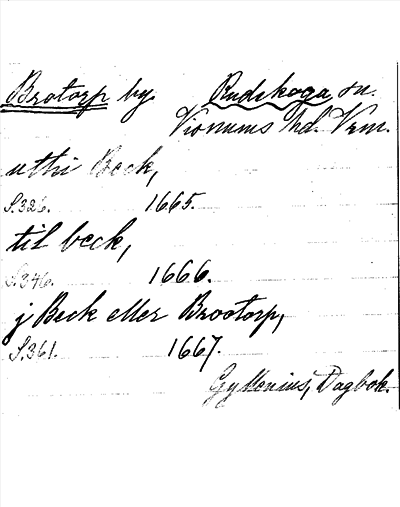 Brotorp by Rudskoga sn.
Visnums hd. Vrm.
uthi Beck,
S.326. 1665.
til beck,
S.346. 1666.
j Beck eller Brootorp,
S.361. 1667.
Gyllenius, Dagbok.